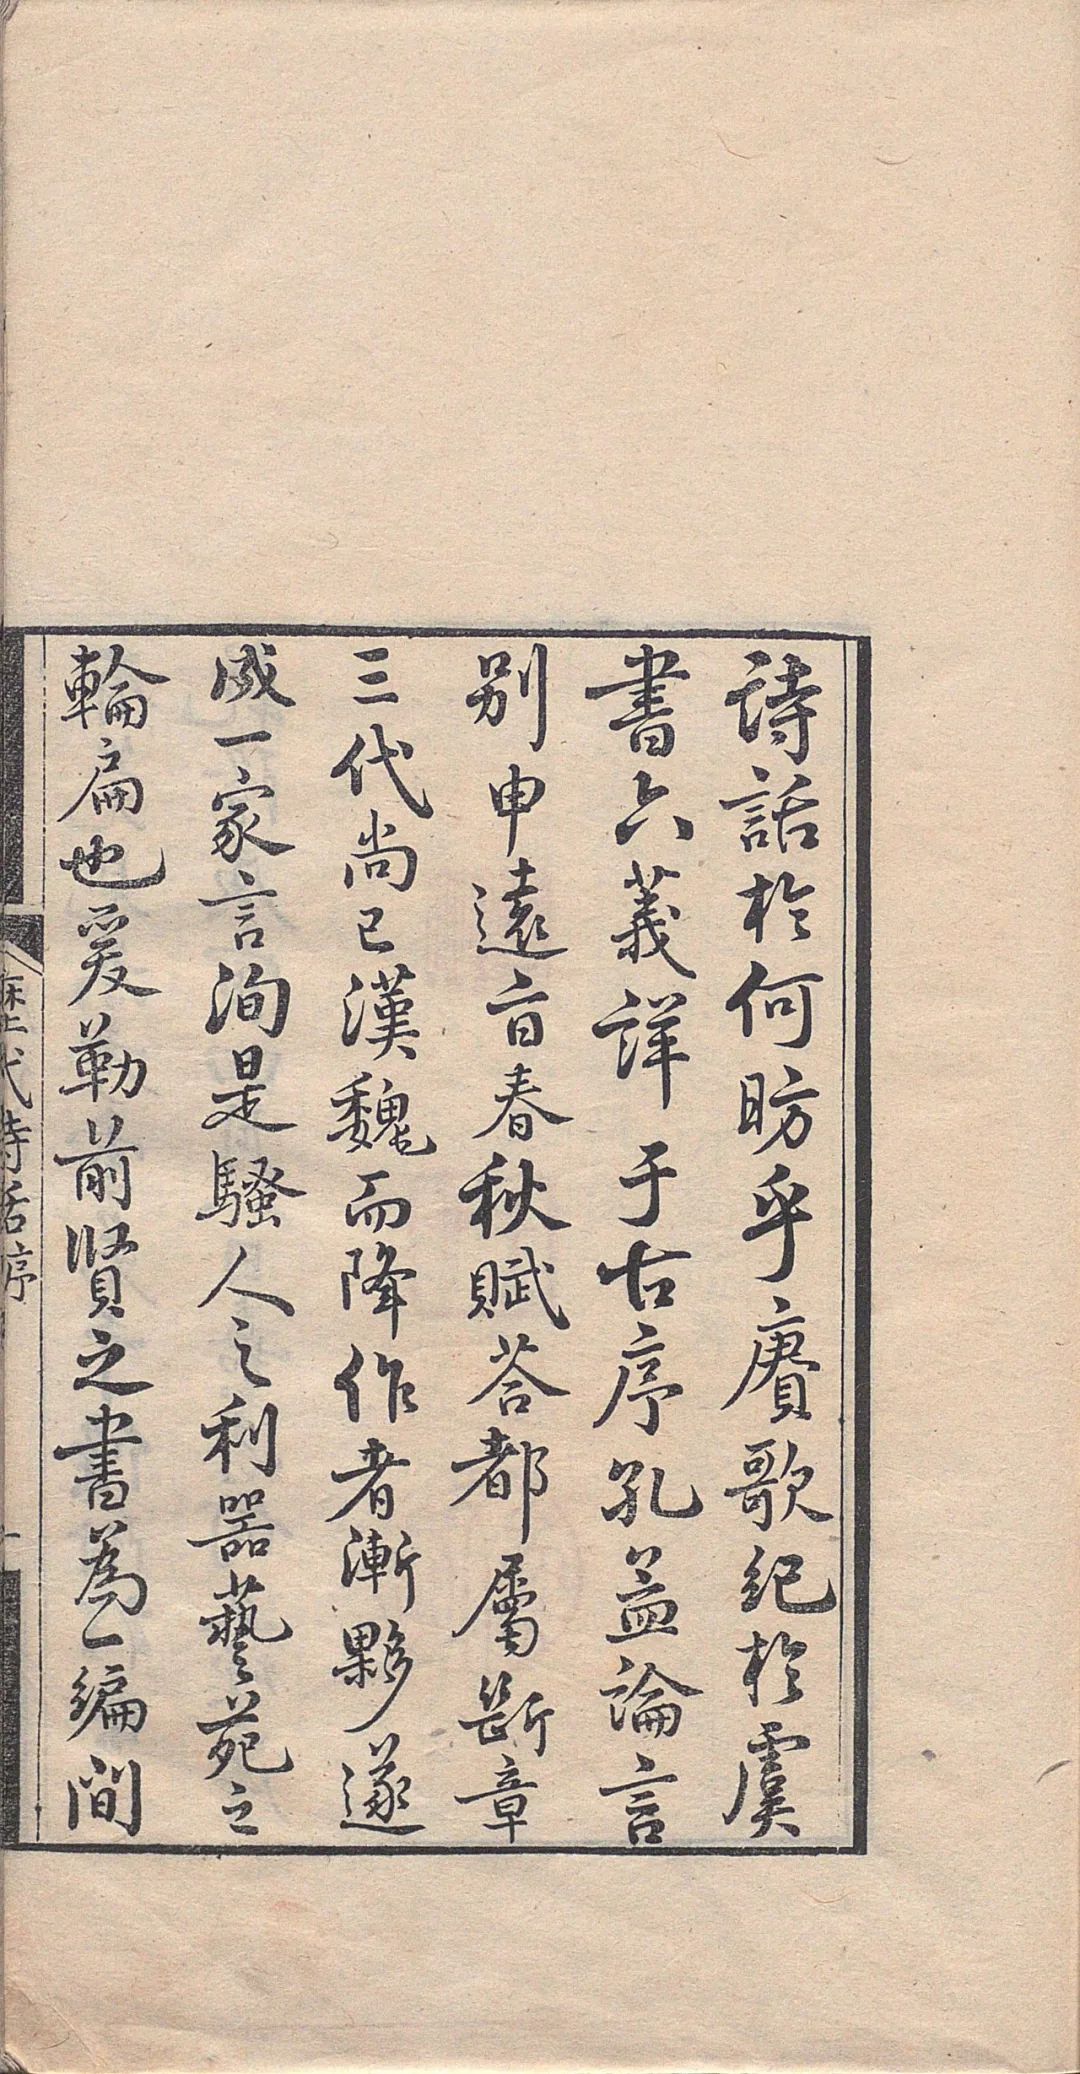 詩話於何昉乎賡歌紀於虞
書六義詳于古序孔孟論言
別申遠旨春秋賦荅都屬斷章
三代尚已漢魏而降作者漸夥遂
成一家言洵是騷人之利器藝苑之
輪扁也爰勒前賢之書為一編間
歷代詩話序
一